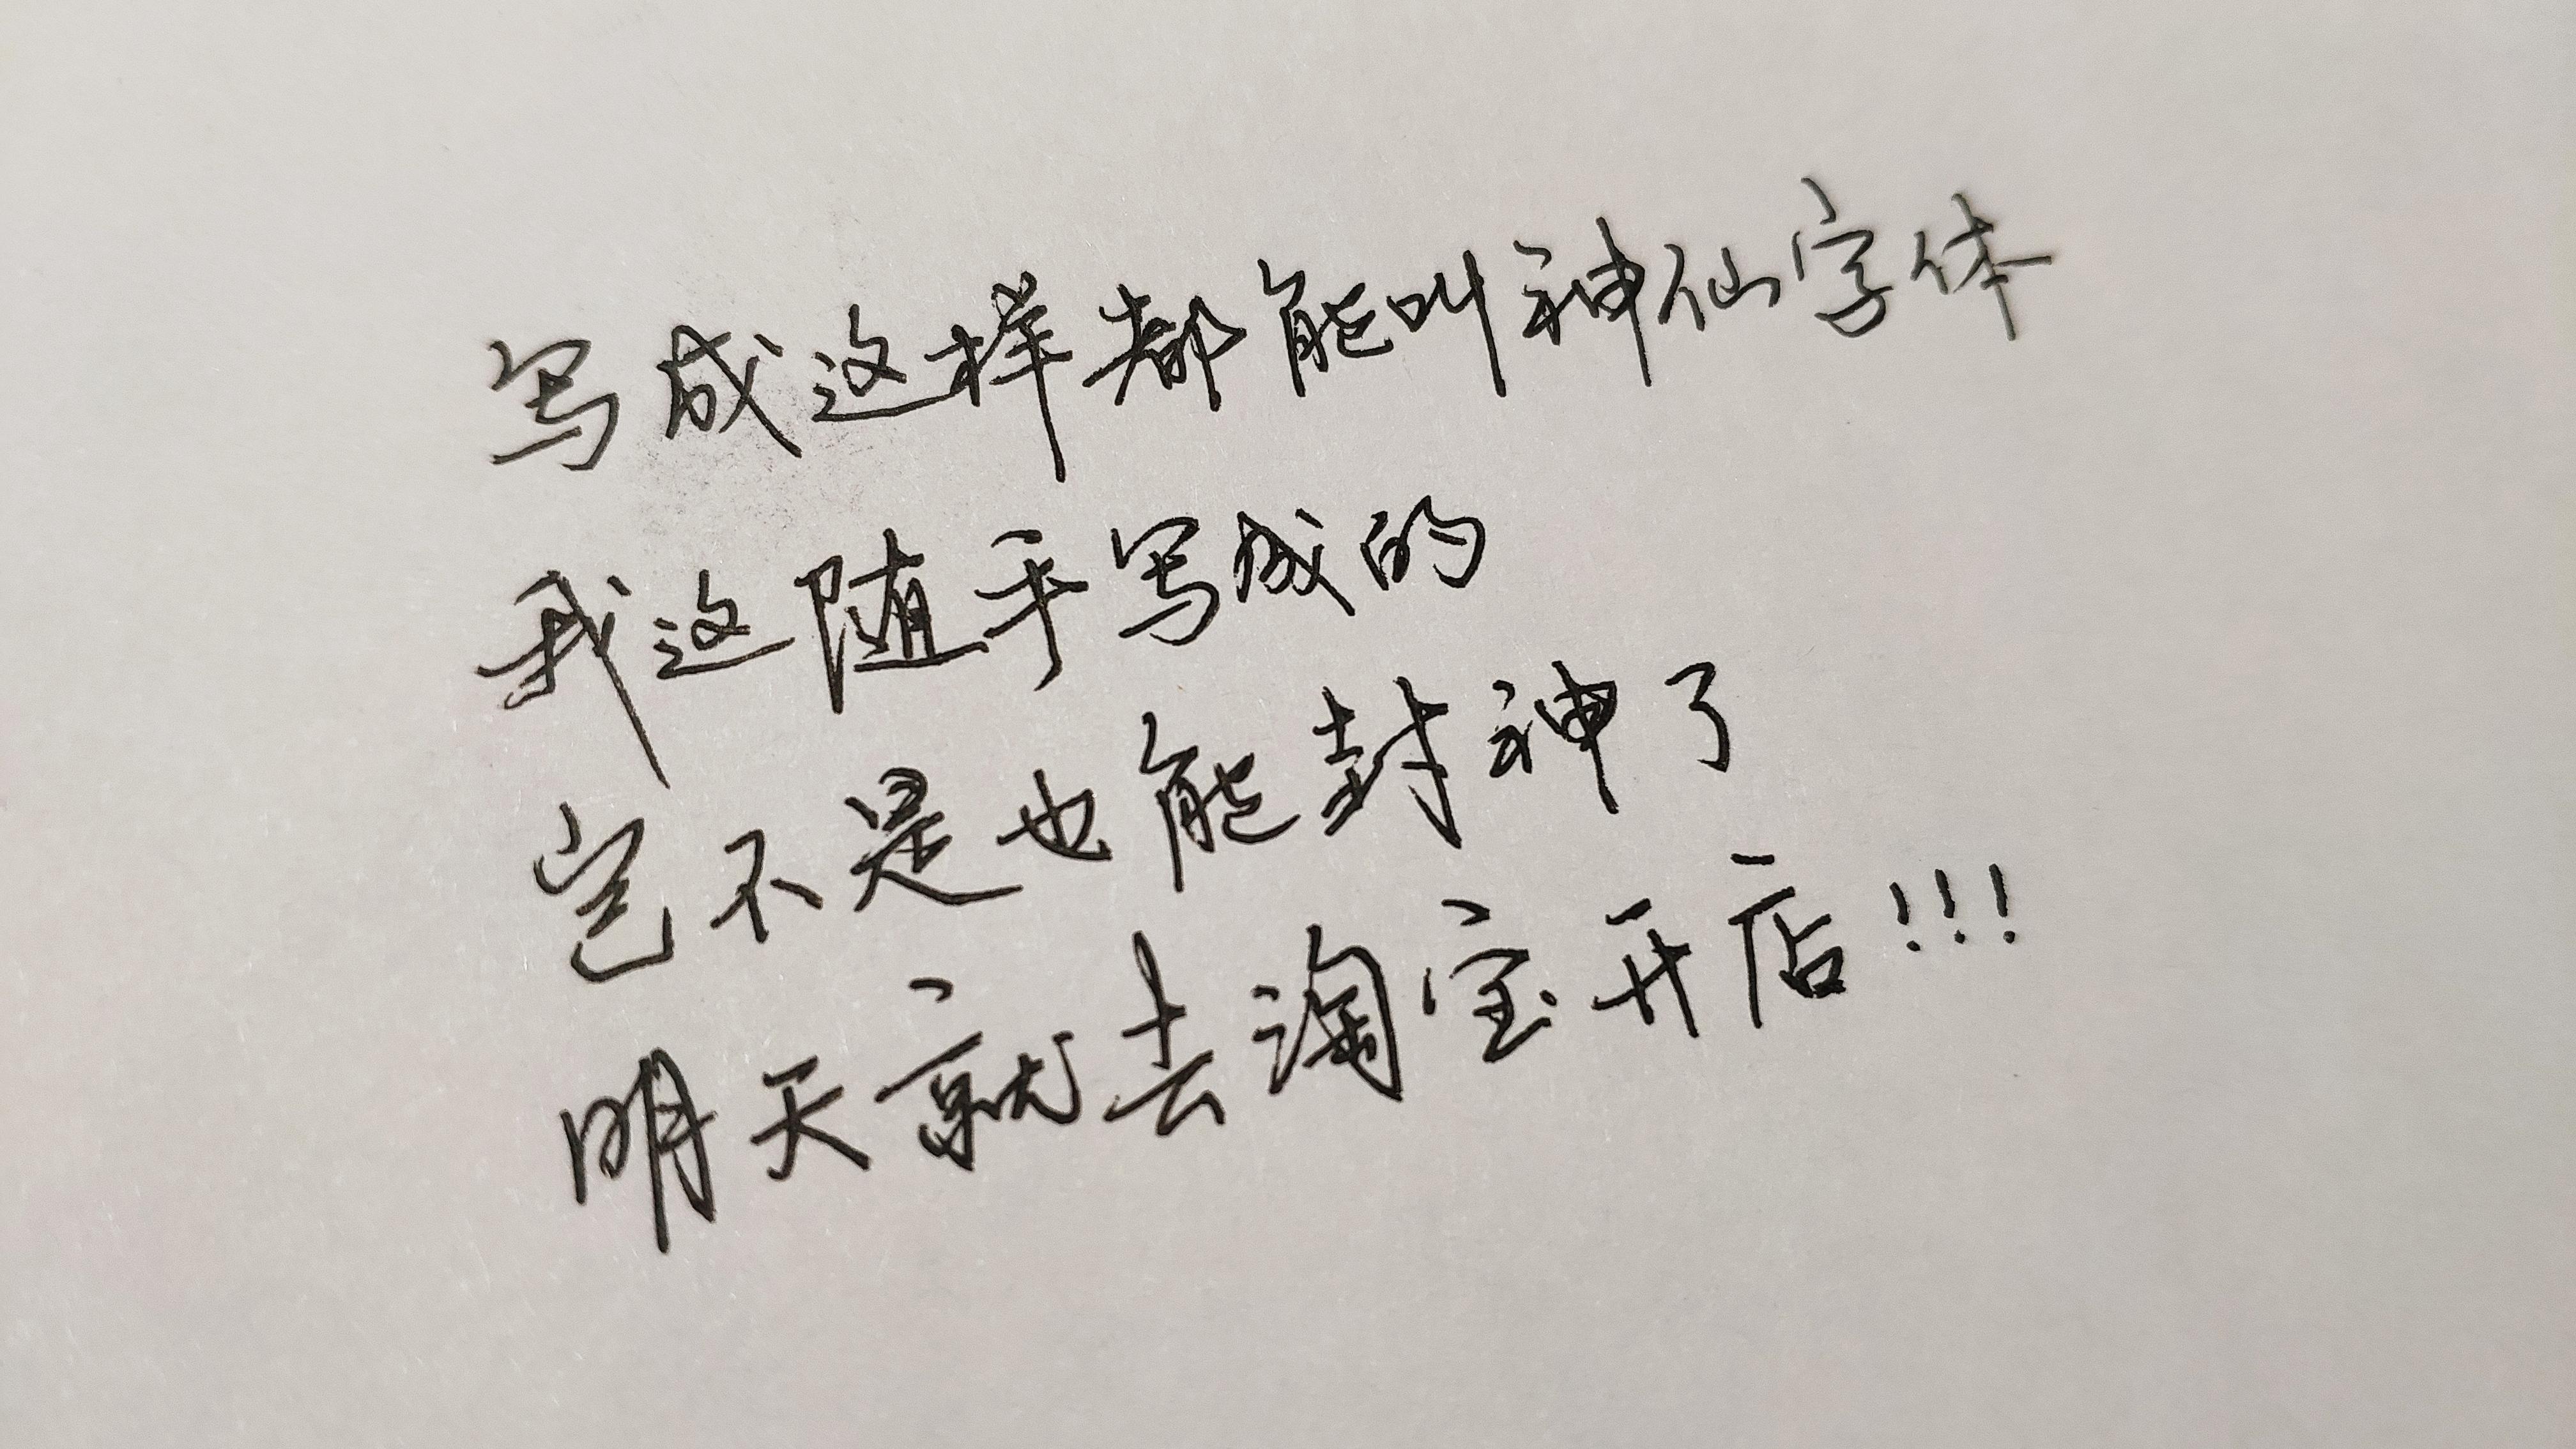 写成这样都能叫神仙字体
我这随手写成的
岂不是也能封神了
明天就去淘宝开店!!!